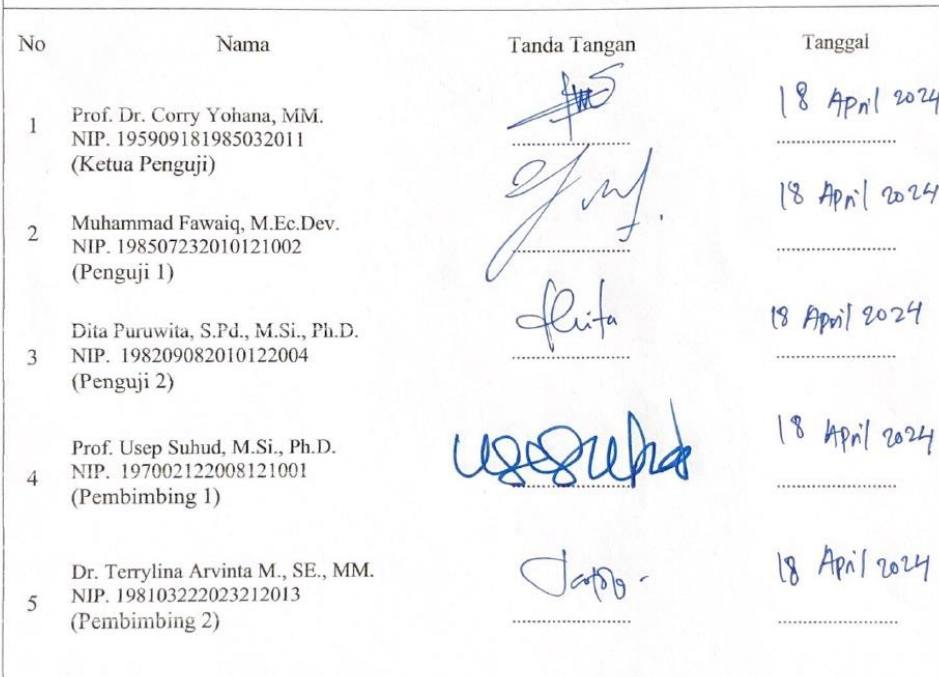 No Nama Tanda Tangan Tanggal
1 Prof. Dr. Corry Yohana, MM.
NIP. 195909181985032011
(Ketua Penguji)
18 April 2024
2 Muhammad Fawaiq, M.Ec.Dev.
NIP. 198507232010121002
(Penguji 1)
18 April 2024
3 Dita Puruwita, S.Pd., M.Si., Ph.D.
NIP. 198209082010122004
(Penguji 2)
18 April 2024
4 Prof. Usep Suhud, M.Si., Ph.D.
NIP. 197002122008121001
(Pembimbing 1)
18 April 2024
5 Dr. Terrylina Arvinta M., SE., MM.
NIP. 198103222023212013
(Pembimbing 2)
18 April 2024